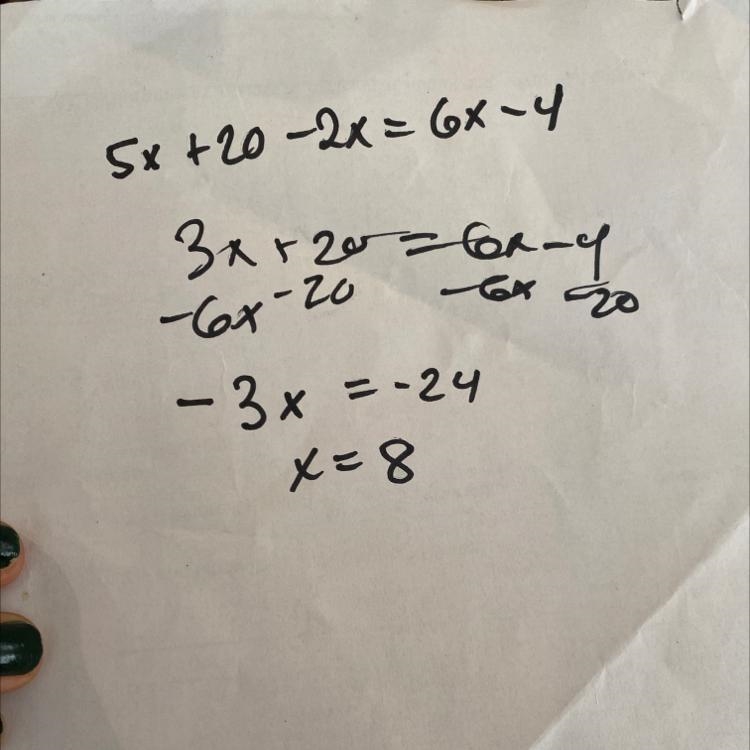 5x + 20 - 2x = 6x - 4
3x + 20 = 6x - 4
-6x - 20 -6x -20
-3x = -24
x = 8